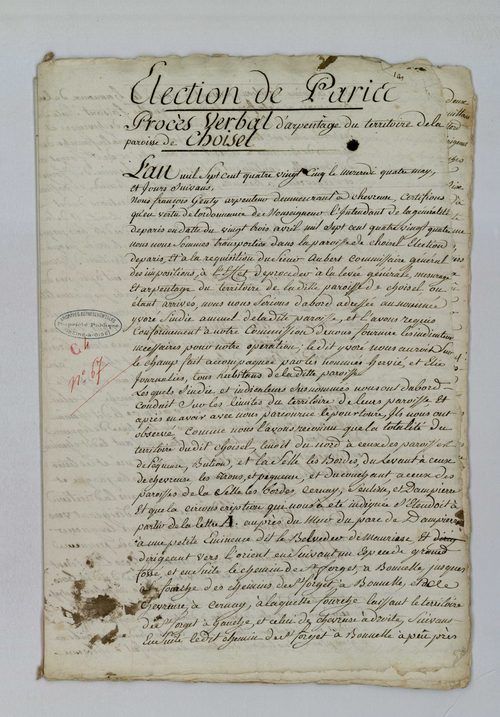 Election de Paris
Procès Verbal d'arpentage du territoire de la
paroisse de Choisel
L'an mil sept cent quatre vingt cinq le mercredi quatre may,
et jours suivans,
Nous françois Genty arpenteur demeurant à chevreuse, Certifions
qu'en vertu de l'ordonnance de Monseigneur l'Intendant de la generalité
de paris en datte du vingt trois avril mil sept cent quatre vingt quatre
nous nous sommes transporté dans la paroisse de choisel Election
de paris, et à la requisition du Sieur Aubert Commissaire general
des impositions, à l'Effet de proceder à la levée générale, mesurage
et arpentage du territoire de la ditte paroisse de Choisel ou
étant arrivés, nous nous serions d'abord adressé au nommé
yvore Sindic annuel de la ditte paroisse, et l'avons requis
Conformement à notre Commission de nous fournir les indicateurs
necessaires pour notre operation; le dit yvore nous auroit sur
le champ fait accompagner par les nommés Hervié, et
Journaliers, tous habitans de la ditte paroisse
Lesquels sindic et indicateurs susnommés nous ont d'abord
Conduit sur les limites du territoire de leur paroisse et
après en avoir avec nous parcouru le pourtour, ils nous ont
observé, comme nous l'avons reconnu que la totalité du
territoire du dit choisel, tenoit du nord à ceux des paroisses
et la Celle les Bordes, du Levant à ceux
de chevreuse et du couchant à ceux des
paroisses de la Celle les Bordes Cernay, Senlisse, et Dampierre
Et que la circonscription qui nous a été indiquée s'Etendoit à
partir de la lettre A. auprès du Mur du parc de Dampierre
à une petite Eminence dit le Belveder de Meuriane et
dirigeant vers l'orient en suivant un Espece de grand
fossé et ensuite le chemin de St. forget, à Bonnelle, jusques
à fourche des chemins de St. forget, à Bonnelle, & de
Chevreuse, à Cernay, à laquelle fourche laissant le territoire
de St. forget à Gauche, et celui de Chevreuse à droite, suivant
Ensuite le dit chemin de St. forget à Bonnelle à peu près
C 4
N° 67